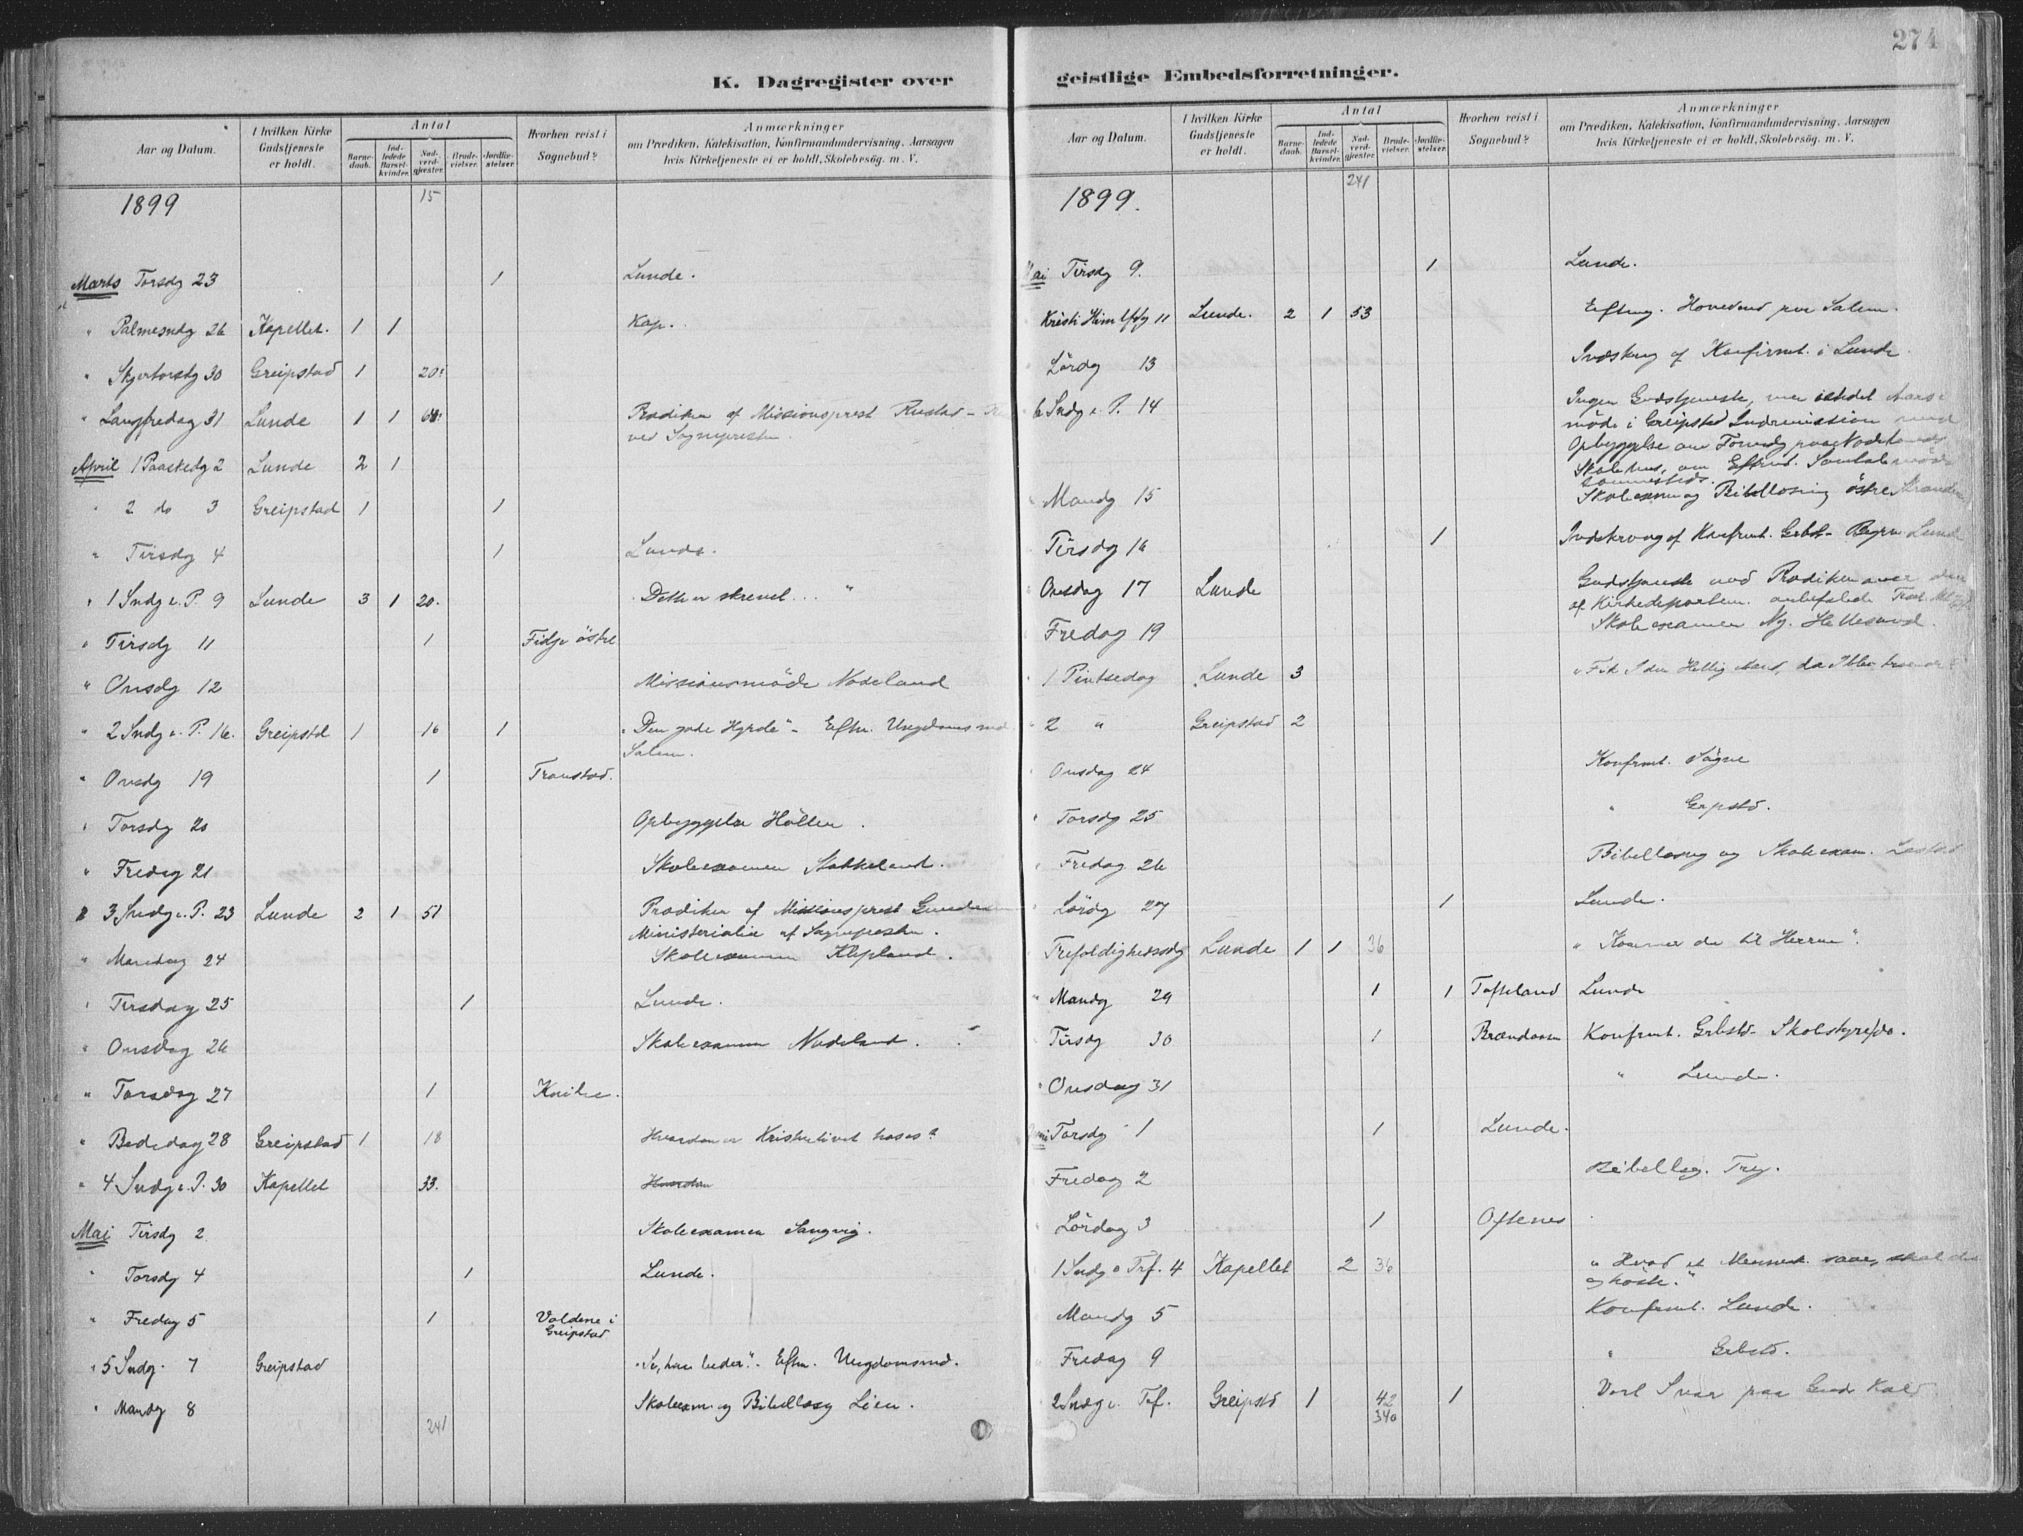 274
K. Dagregister over
Aar og Datum.
I hvilken Kirke Gudstjeneste er holdt.
Antal
Barnedaab.
Indledede Barselkvinder.
Nadverdgjæster.
Brudevielser.
Jordfæstelser.
Hvorhen reist i Sognebud?
Anmærkninger
om Prædiken, Katekisation, Konfirmandundervisning. Aarsagen
hvis Kirketjeneste ei er holdt, Skolebesög. m. V.
1899 15
Marts Torsdg 23 1 Lunde.
" Palmesndg 26 Kapellet. 1 1 Kap.
" Skjertorsdg 30 Greipstad 1 20
" Langfredag 31 Lunde 1 1 Prædiken af Missionsprest Rustad -
ved Sognepresten.
April 1 Paaskedg 2 Lunde 2 1
" 2 do 3 Greipstad 1 1
" Tirsdg 4 1 Lunde.
" 1 Sndg e. P. 9 Lunde 3 1 20. Dette er skrevet... "
" Tirsdg 11 1 Fidje östre
" Onsdg 12 Missionsmöde Nodeland
" 2 Sndg e. P. 16. Greipstd 1 16 1 "Den gode Hyrde" - Eftm. Ungdoms
Salem.
" Onsdg 19 1 Tronstad.
" Torsdg 20 Opbyggelse Höllen.
" Fredag 21 Skoleexamen Stokkeland.
" 3 Sndg e. P. 23 Lunde 2 1 51 Prædiken af Missionsprest
Ministerialia af Sognepresten.
" Mandag 24 Skoleexamen Klepland.
" Tirsdag 25 1 Lunde.
" Onsdag 26 Skoleexamen Nodeland.
" Torsdag 27 1
" Bededag 28 Greipstad 1 18 Hvordan er Kristenlivet
" 4 Sndg e. P. 30 Kapellet 33. Hvordan
Mai Tirsdg 2 Skoleexamen Langvig.
" Torsdg 4 1 Lunde.
" Fredag 5 1 Voldene i
Greipstad
" 5 Sndg. 7 Greipstad "Se, han beder". Eftm. Ungdomsmd.
" Mandg 8 Skoleexm. og Bibellæsg Lien.
241
geistlige Embedsforretninger.
Aar og Datum.
I hvilken Kirke Gudstjeneste er holdt.
Antal
Barnedaab.
Indledede Barselkvinder.
Nadverdgjæster.
Brudevielser.
Jordfæstelser.
Hvorhen reist i Sognebud?
Anmærkninger
om Prædiken, Katekisation, Konfirmandundervisning. Aarsagen
hvis Kirketjeneste ei er holdt, Skolebesög. m. V.
1899. 241
Mai Tirsdg 9. 1 Lunde.
Kristi Himlfdg 11 Lunde. 2 1 53 Salem.
Lördg 13 Indskrvg af Konfirmt. i Lunde.
6 Sndg e. P. 14 Ingen Gudstjeneste, men Aars
möde i Greipstad Indremission med
Opbyggelse om Formdg paa Nodelands
Skolehus, om Eftmd. Samtalemöde
sammesteds.
" Mandg 15 Skoleexm og Bibellæsning östre
" Tirsdg 16 1 Indskrvng af Konfirmt. Lunde
" Onsdag 17 Lunde Gudstjeneste med Prædiken over
af Kirkedeparten. anbefalede
" Fredag 19 Skoleexamen Ny. Hellesund.
" 1 Pintsedag Lunde 3 "Fik I den Hellig Aand, da I blev troende?
" 2 " Greipstad 2
" Onsdag 24 Konfrmt. Sögne
" Torsdg 25 " Grpstd.
" Fredag 26 Bibellæsng og Skoleexam.
" Lördg 27 1 Lunde.
Trefoldighedssdg Lunde 1 1 36 "Kommer du til Herren".
" Mandg 29 1 1 Tofteland Lunde
" Tirsdg 30 1 Brændaasen Konfrmt. Grbstd. Skolstyre
" Onsdag 31 " Lunde.
Juni Torsdg 1 1 Lunde.
Fredag 2 Bibellsg. Treg.
" Lördag 3 1 Oftenes
1 Sndg e Trf. 4 Kapellet 2 36 "Hvad et Mennesk. saar, skal det
og höste."
Mandg 5 Konfrmt. Lunde.
" Fredag 9 " Grbstd.
2 Sndg e. Trf. Greipstd 1 42 1 Vort Svar paa Guds Kald
340